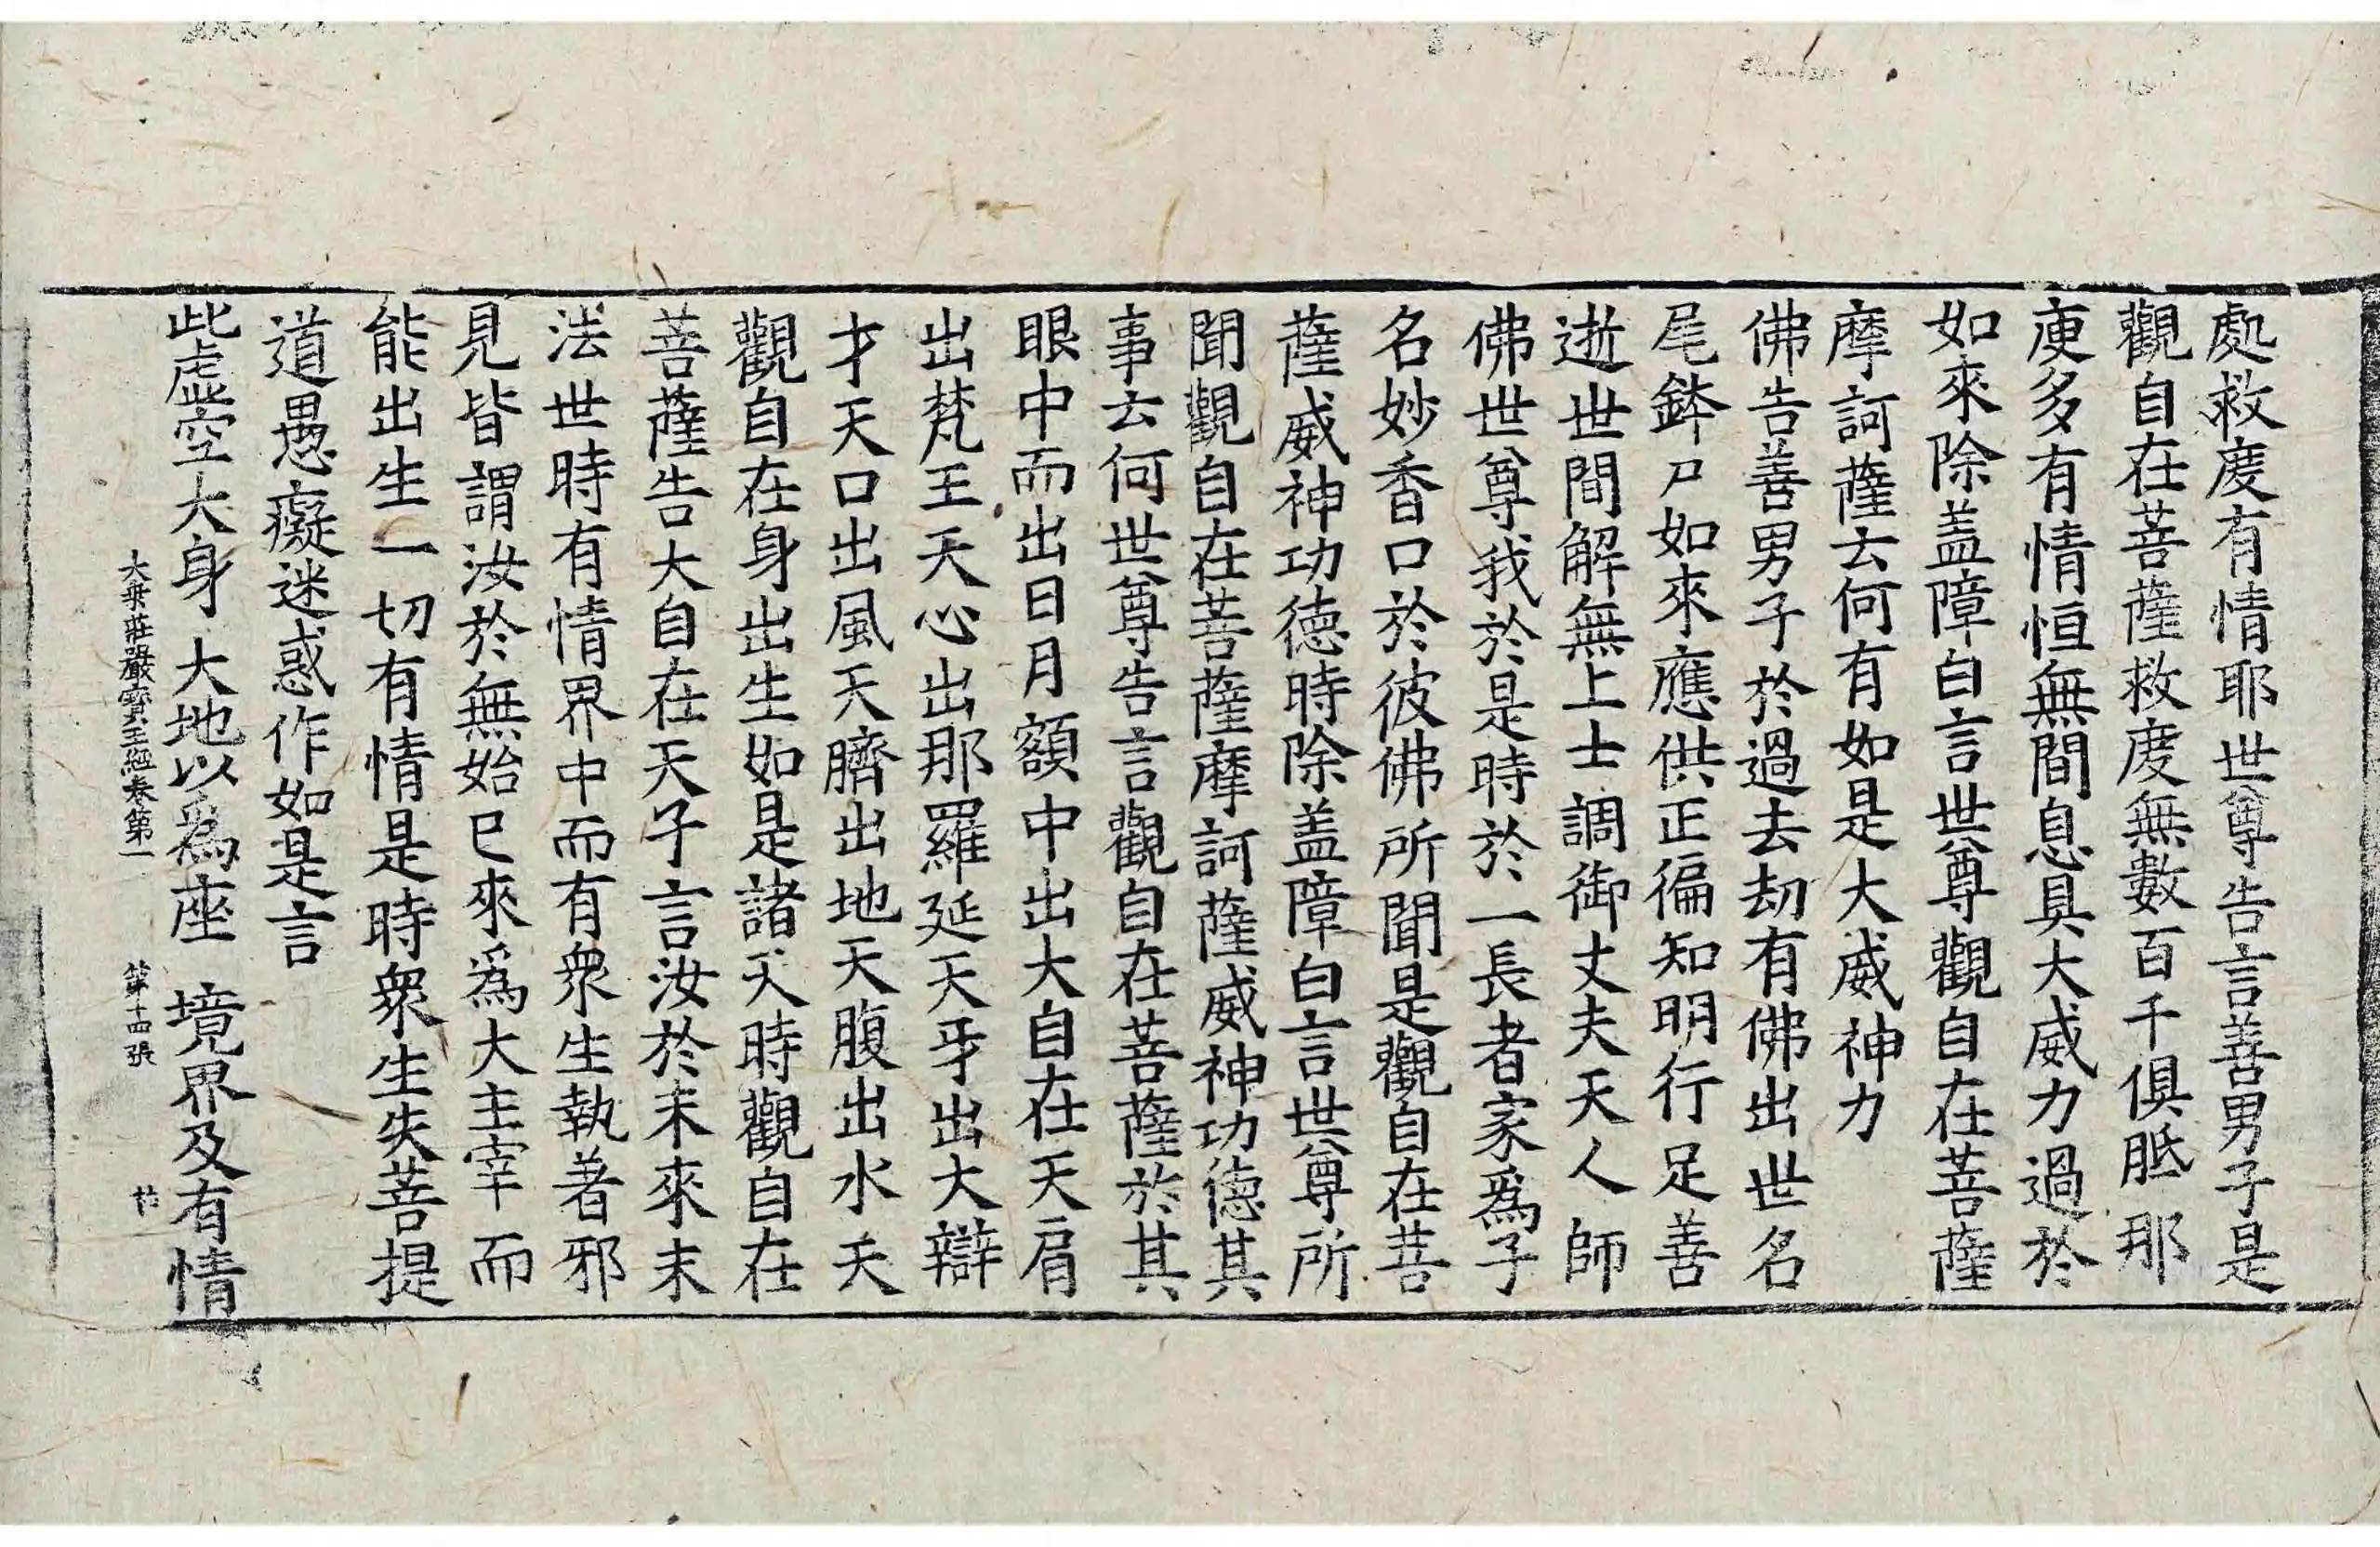 處救度有情耶世尊告言善男子是
觀自在菩薩救度無數百千俱胝那
庾多有情恒無間息具大威力過於
如來除盖障白言世尊觀自在菩薩
摩訶薩云何有如是大威神力
佛告善男子於過去劫有佛出世名
尾鉢尸如來應供正徧知明行足善
逝世間解無上士調御丈夫天人師
佛世尊我於是時於一長者家爲子
名妙香口於彼佛所聞是觀自在菩
薩威神功德時除盖障白言世尊所
聞觀自在菩薩摩訶薩威神功德其
事云何世尊告言觀自在菩薩於其
眼中而出日月額中出大自在天肩
出梵王天心出那羅延天牙出大辯
才天口出風天臍出地天腹出水天
觀自在身出生如是諸天時觀自在
菩薩告大自在天子言汝於未來末
法世時有情界中而有衆生執著邪
見皆謂汝於無始已來爲大主宰而
能出生一切有情是時衆生失菩提
道愚癡迷惑作如是言
此虛空大身 大地以爲座 境界及有情
大乗莊嚴寶王經卷第一 第十四張